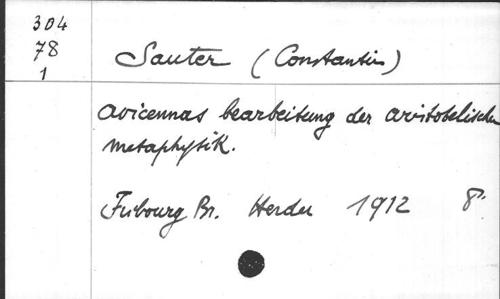 304
78
1
Sauter (Constantin)
Avicennas bearbeitung der aristotelischen
metaphysik.
Freiburg Br. Herder 1912 8°.